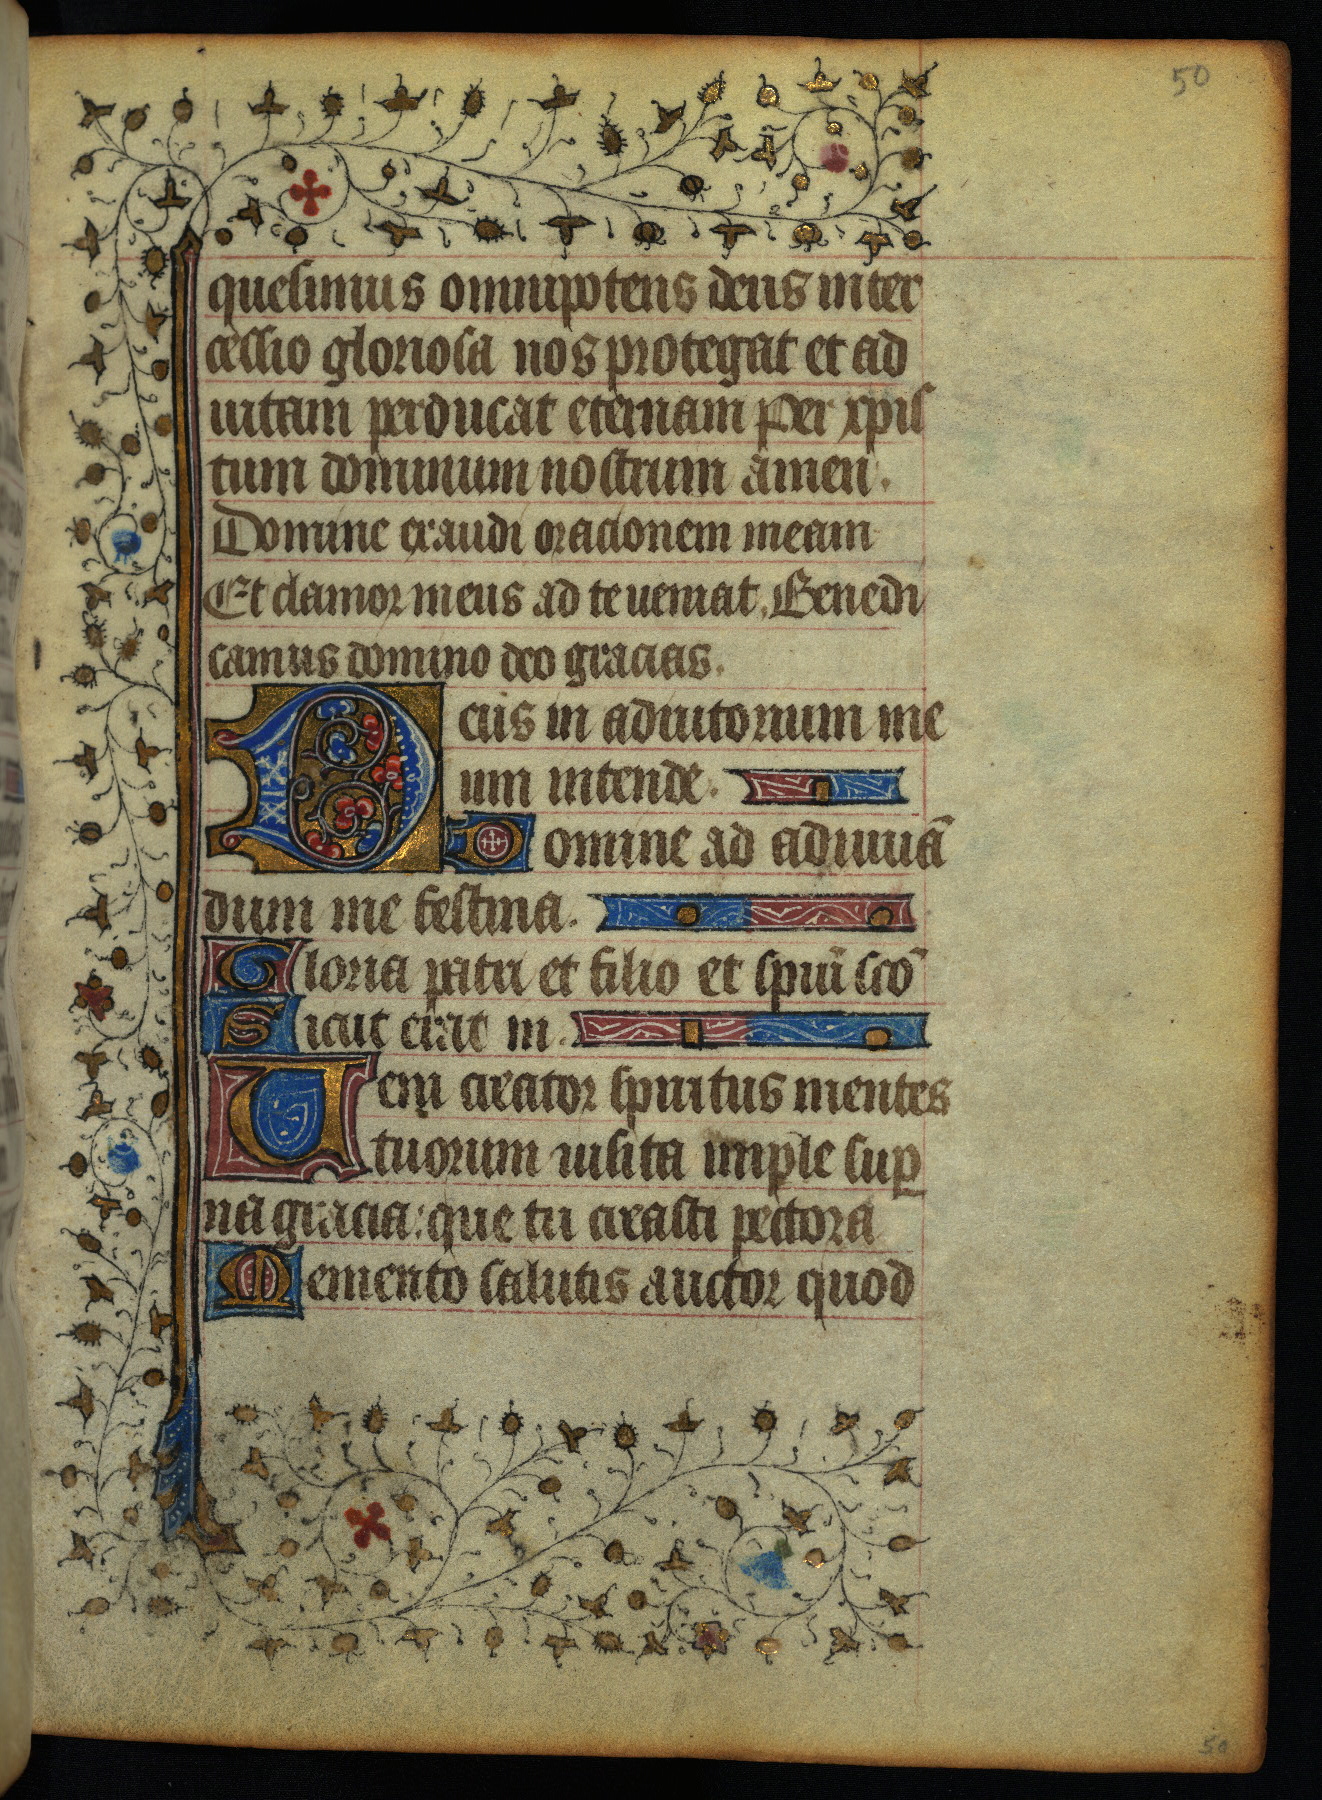 50
quesimus omnipotens deus inter
cessio gloriosa nos protegat et ad
uitam perducat eternam Per xpis
tum dominum nostrum amen.
Domine exaudi oracionem meam
Et clamor meus ad te ueniat. Benedi
camus domino deo gracias.
Deus in adiutorium me
um intende.
Domine ad adiuuā
dum me festina.
Gloria patri et filio et spiūi scō
Sicut erat in.
Ueni creator spiritus mentes
tuorum uisita imple sup
na gracia: que tu creasti pectora
Memento salutis auctor quod
50